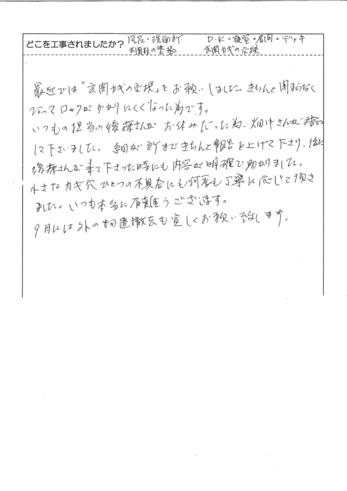 どこを工事されましたか？ 風呂・洗面所 D.K・寝室・居間・デッキ
お部屋の塗装 玄関カギの交換
最近では「玄関カギの交換」をお願いしました。きちんと閉まらなく
なってロックがかかりにくくなった為です。
いつもの担当の後藤さんが お休みだった為、畑中さんが
して下さいました。細かい所まできちんと報告を上げて下さり、後に
後藤さんが来て下さった時にも内容が明確で助かりました。
小さなカギ穴ひとつの不具合にも何度も丁寧に応じて頂き
ました。いつも本当に有難うございます。
9月には外の物置撤去も宜しくお願い致します。